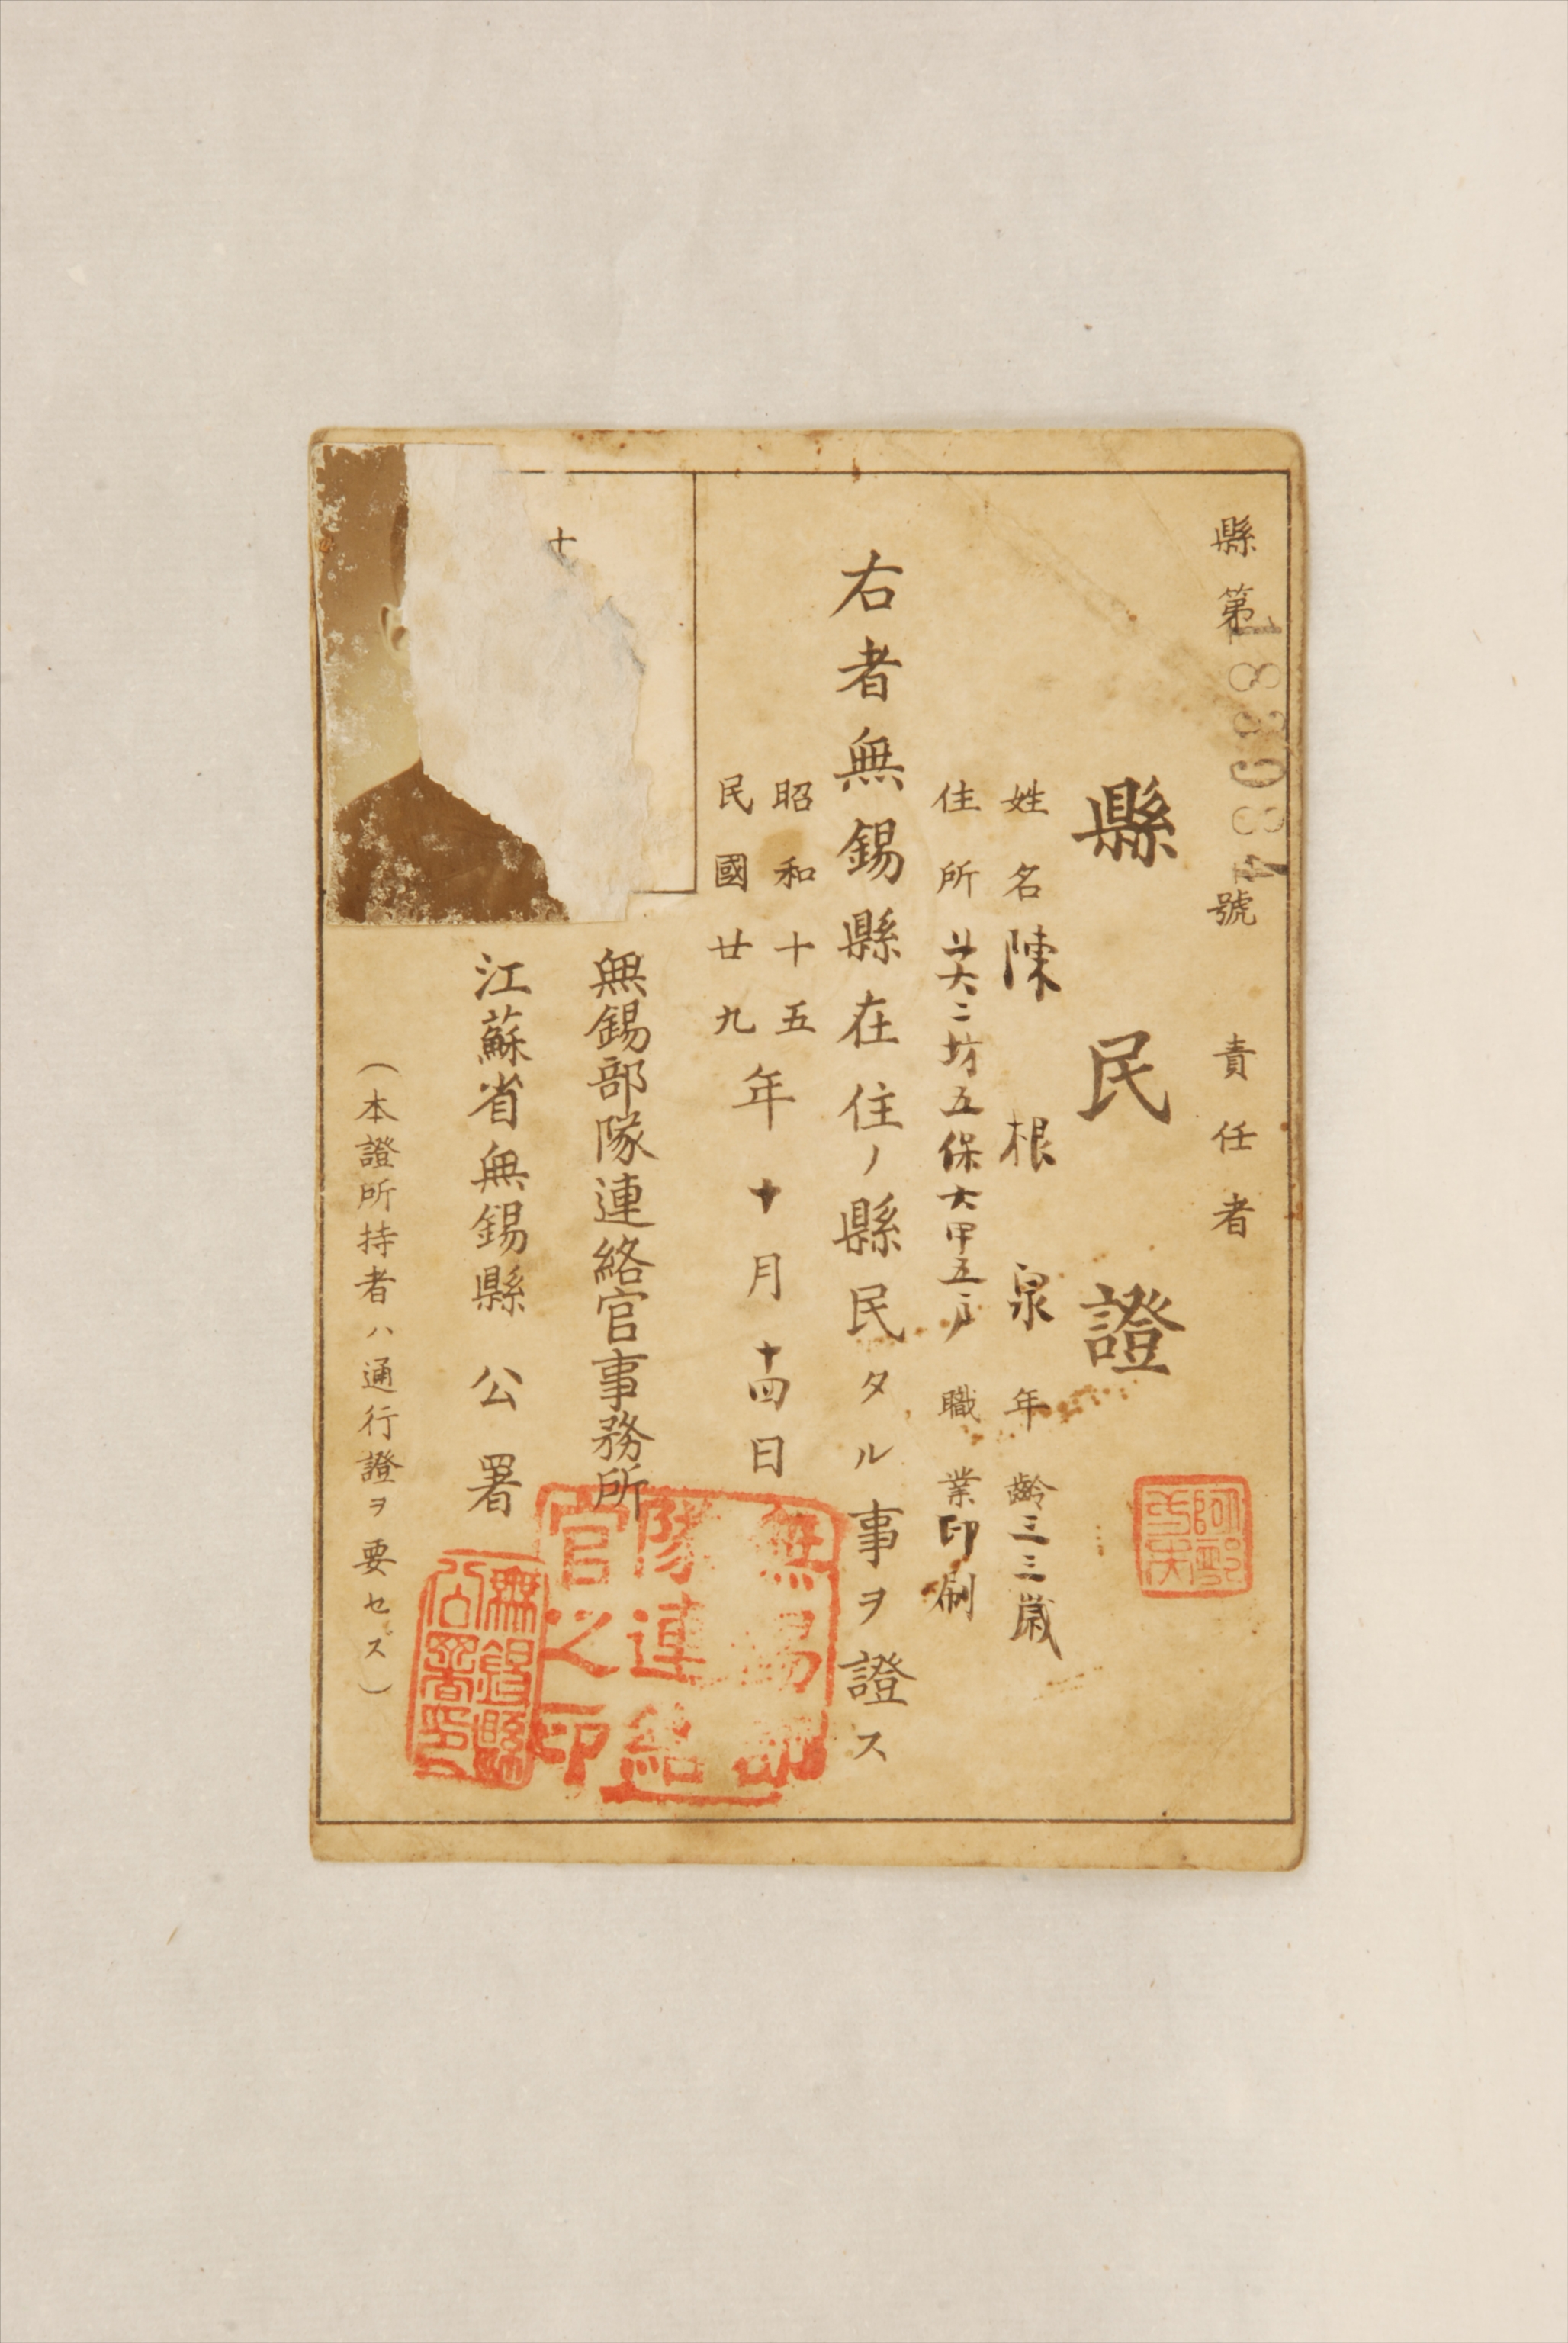 縣第183084號 責任者
縣民證
姓名陳根泉 年齡三三歲
住所 二坊五保六甲五戶 職業印刷
右者無錫縣在住ノ縣民タル事ヲ證ス
昭和十五
民國廿九
年十月十四日
無錫部隊連絡官事務所
無錫部隊連絡官之印
江蘇省無錫縣公署
無錫縣公署印
(本證所持者ハ通行證ヲ要セズ)
十